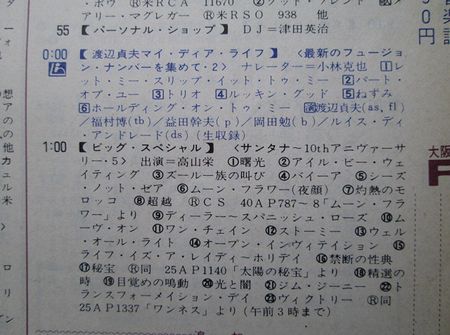 アリー・マグレガー ⓇRSO 938 他
55 【パーソナル・ショップ】 DJ=津田英治
0:00 【渡辺貞夫マイ・ディア・ライフ】 〈最新のフュージョ
ン・ナンバーを集めて・2〉 ナレーター=小林克也 ①レ
ット・ミー・スリップ・イット・トゥ・ミー ②パート・
オブ・ユー ③トリオ ④ルッキン・グッド ⑤ねずみ
⑥ホールディング・オン・トゥ・ミー 演渡辺貞夫(as, fl)
/福村博(tb)/益田幹夫(p)/岡田勉(b)/ルイス・ディ
・アンドレード(ds) (生収録)
1:00 【ビッグ・スペシャル】 〈サンタナ〜10thアニヴァーサ
リー・5〉 出演=高山栄 ①曙光 ②アイル・ビー・ウェ
イティング ③ズールー族の叫び ④バイーア ⑤シーズ
・ノット・ゼア ⑥ムーン・フラワー(夜顔) ⑦灼熱のモ
ロッコ ⑧超越 ⓇCS 40AP787〜8「ムーン・フラ
ワー」より ⑨ディーラー〜スパニッシュ・ローズ ⑩ム
ーヴ・オン ⑪ワン・チェイン ⑫ストーミー ⑬ウェル
・オール・ライト ⑭オープン・インヴィティション ⑮
ライフ・イズ・ア・レイディ〜ホリデイ ⑯禁断の性典
⑰秘宝 Ⓡ同 25AP1140「太陽の秘宝」より ⑱精選の
時 ⑲目覚めの鳴動 ⑳光と闇 ㉑ジム・ジーニー ㉒ト
ランスフォーメイション・デイ ㉓ヴィクトリー Ⓡ同
25AP1337「ワンネス」より (午前3時まで)
0
円
大阪